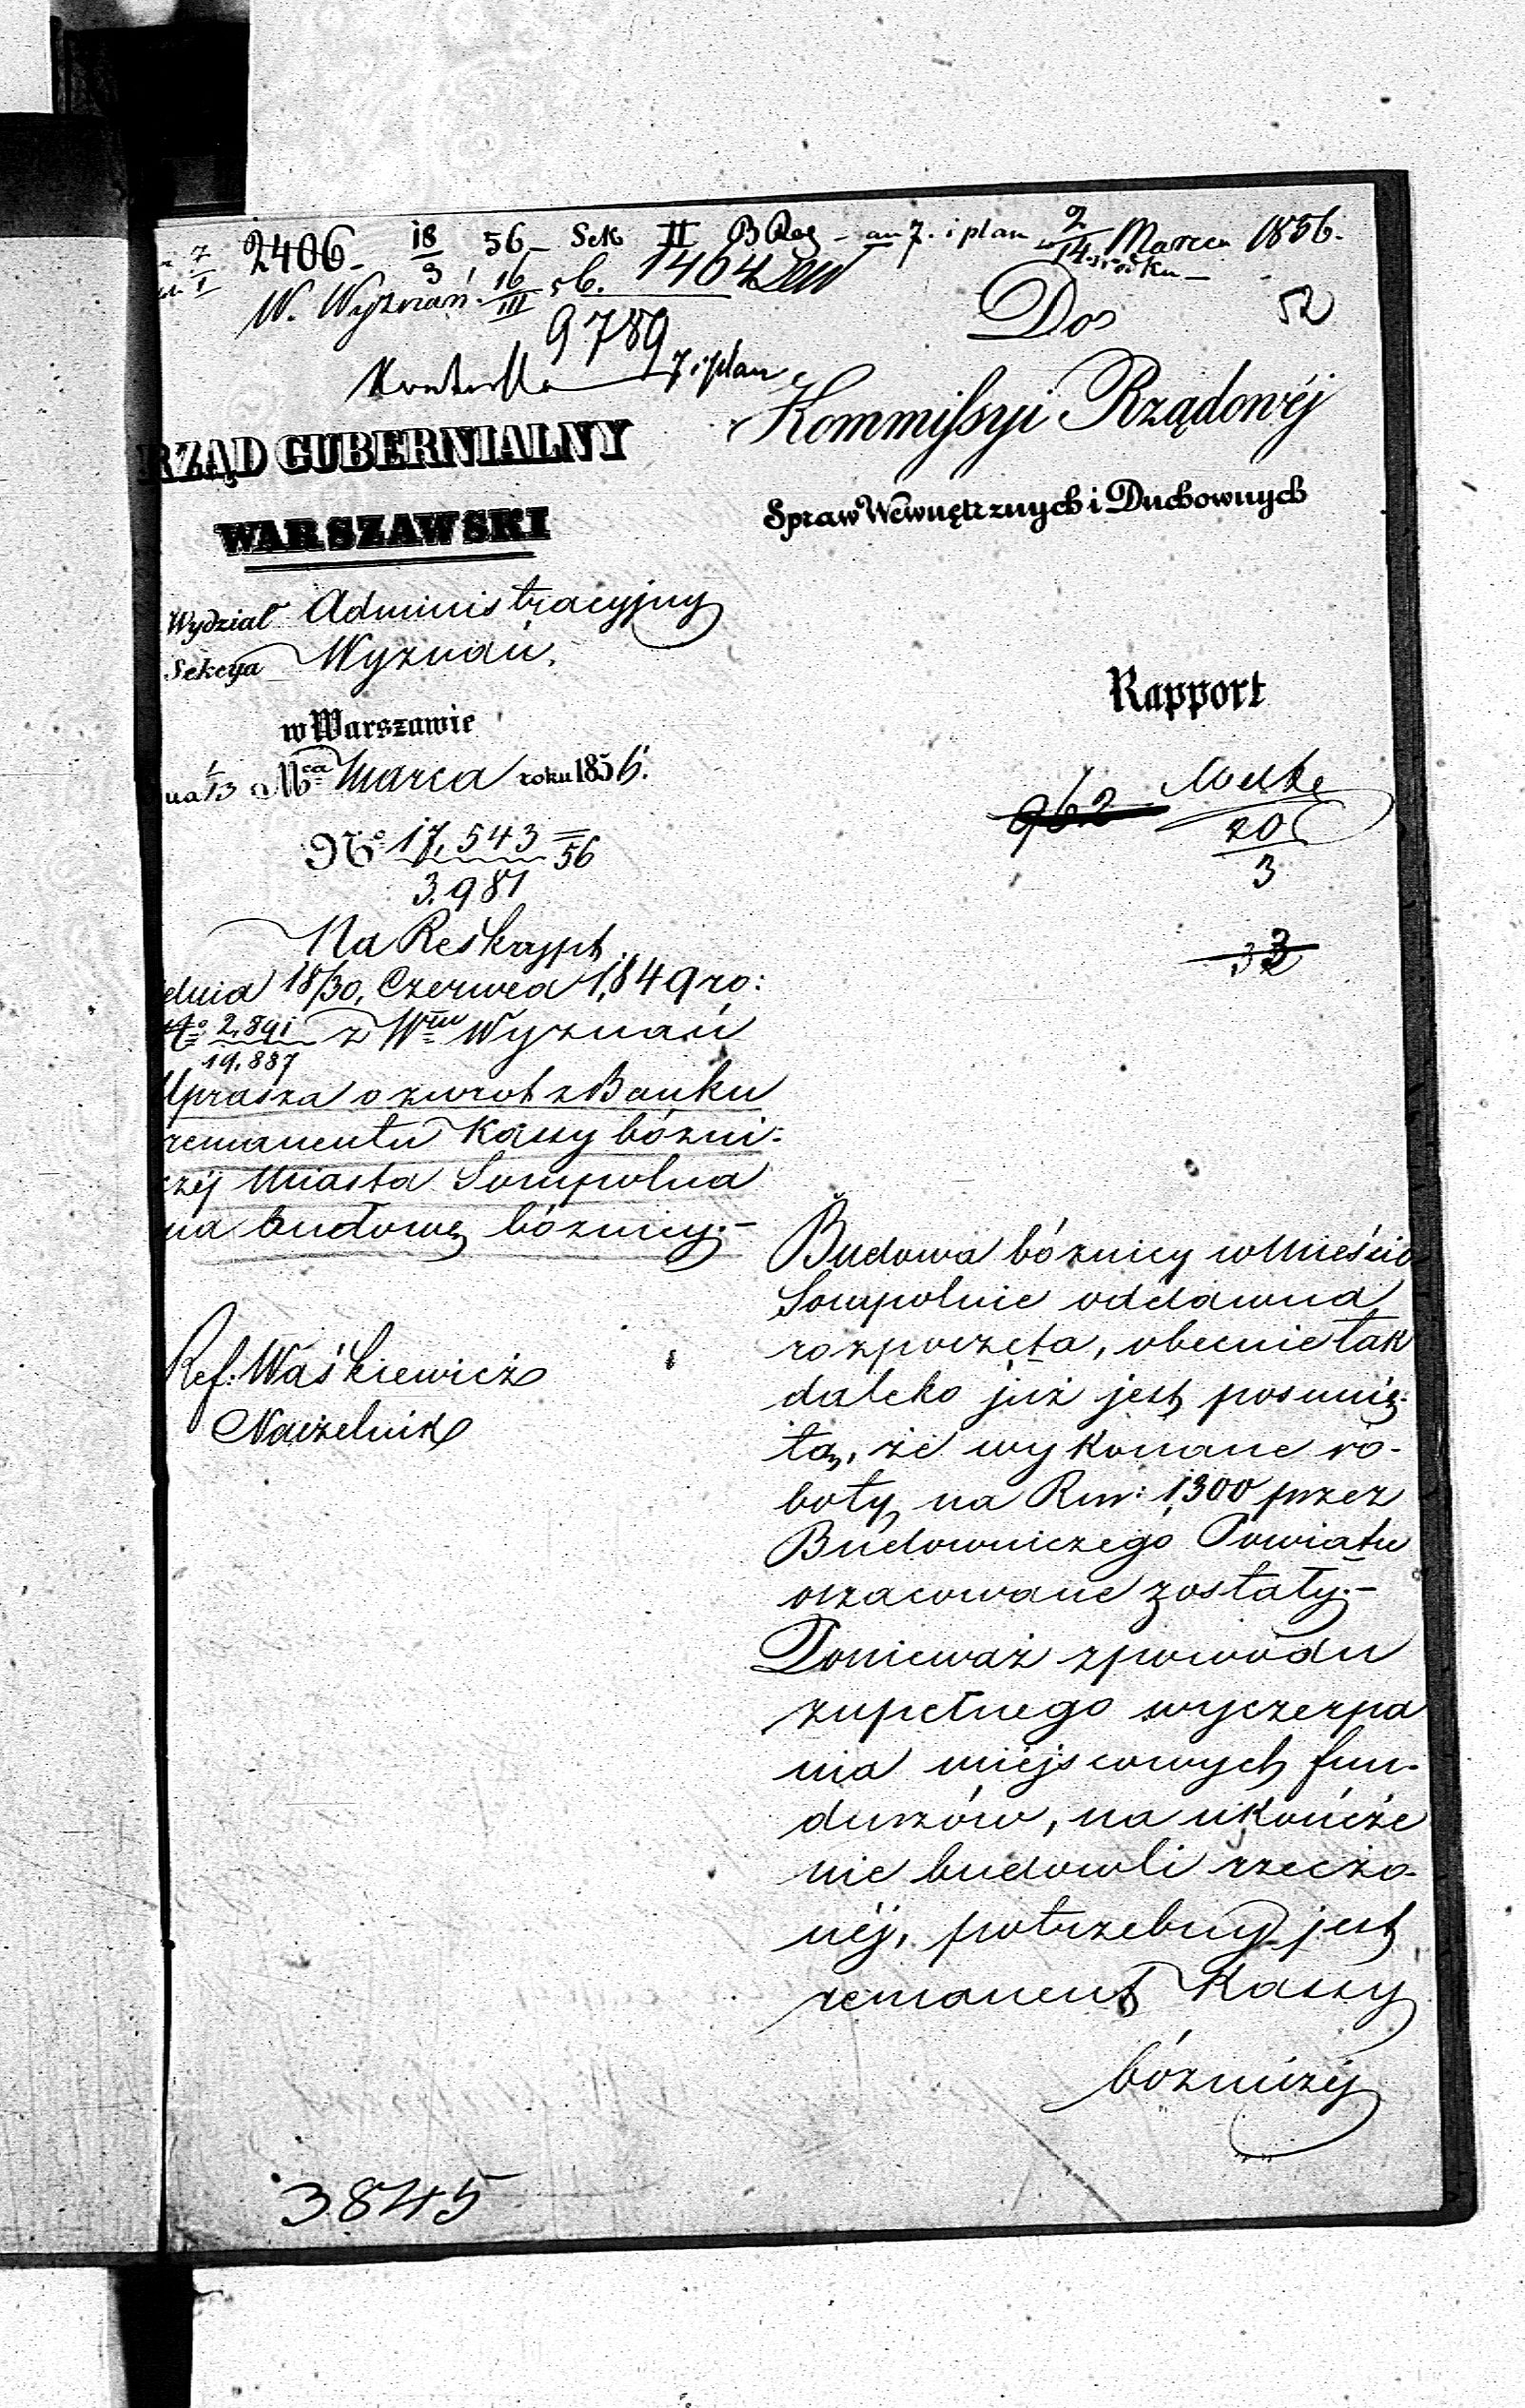 2406 18/3 56 – Sek II B Reg – an 7. i plan 2/14 Marca 1856.
W. Wyznań. 16/III 56. 1464
9789
7 i plan
Do
52
Kommissyi Rządowéj
Spraw Wewnętrznych i Duchownych
RZĄD GUBERNIALNY
WARSZAWSKI
Wydział Administracyjny
Sekcya Wyznań.
w Warszawie
1/13 Mca Marca roku 1856.
No 17,543/3,981 56
Rapport
962
20/3
32
Na Reskrypt
dnia 18/30, Czerwca 1,849 ro:
No 2,891/19,887 z Włu Wyznań
Uprasza o zwrot z Banku
remanentu Kassy bózni:
czéj Miasta Sompolna
na budowę bóznicy.–
Ref. Waśkiewicz
Naczelnik
Budowa bóznicy w Mieście
Sompolnie oddawna
rozpoczęta, obecnie tak
daleko już jest posunię-
tą, że wykonane ro-
boty na Rsr: 1300 przez
Budowniczego Powiatu
oszacowane zostały.–
Ponieważ z powodu
zupełnego wyczerpa
nia miejscowych fun-
duszów, na ukończe
nie budowli rzeczo-
néj, potrzebny jest
remanent Kassy
bózniczéj
3845